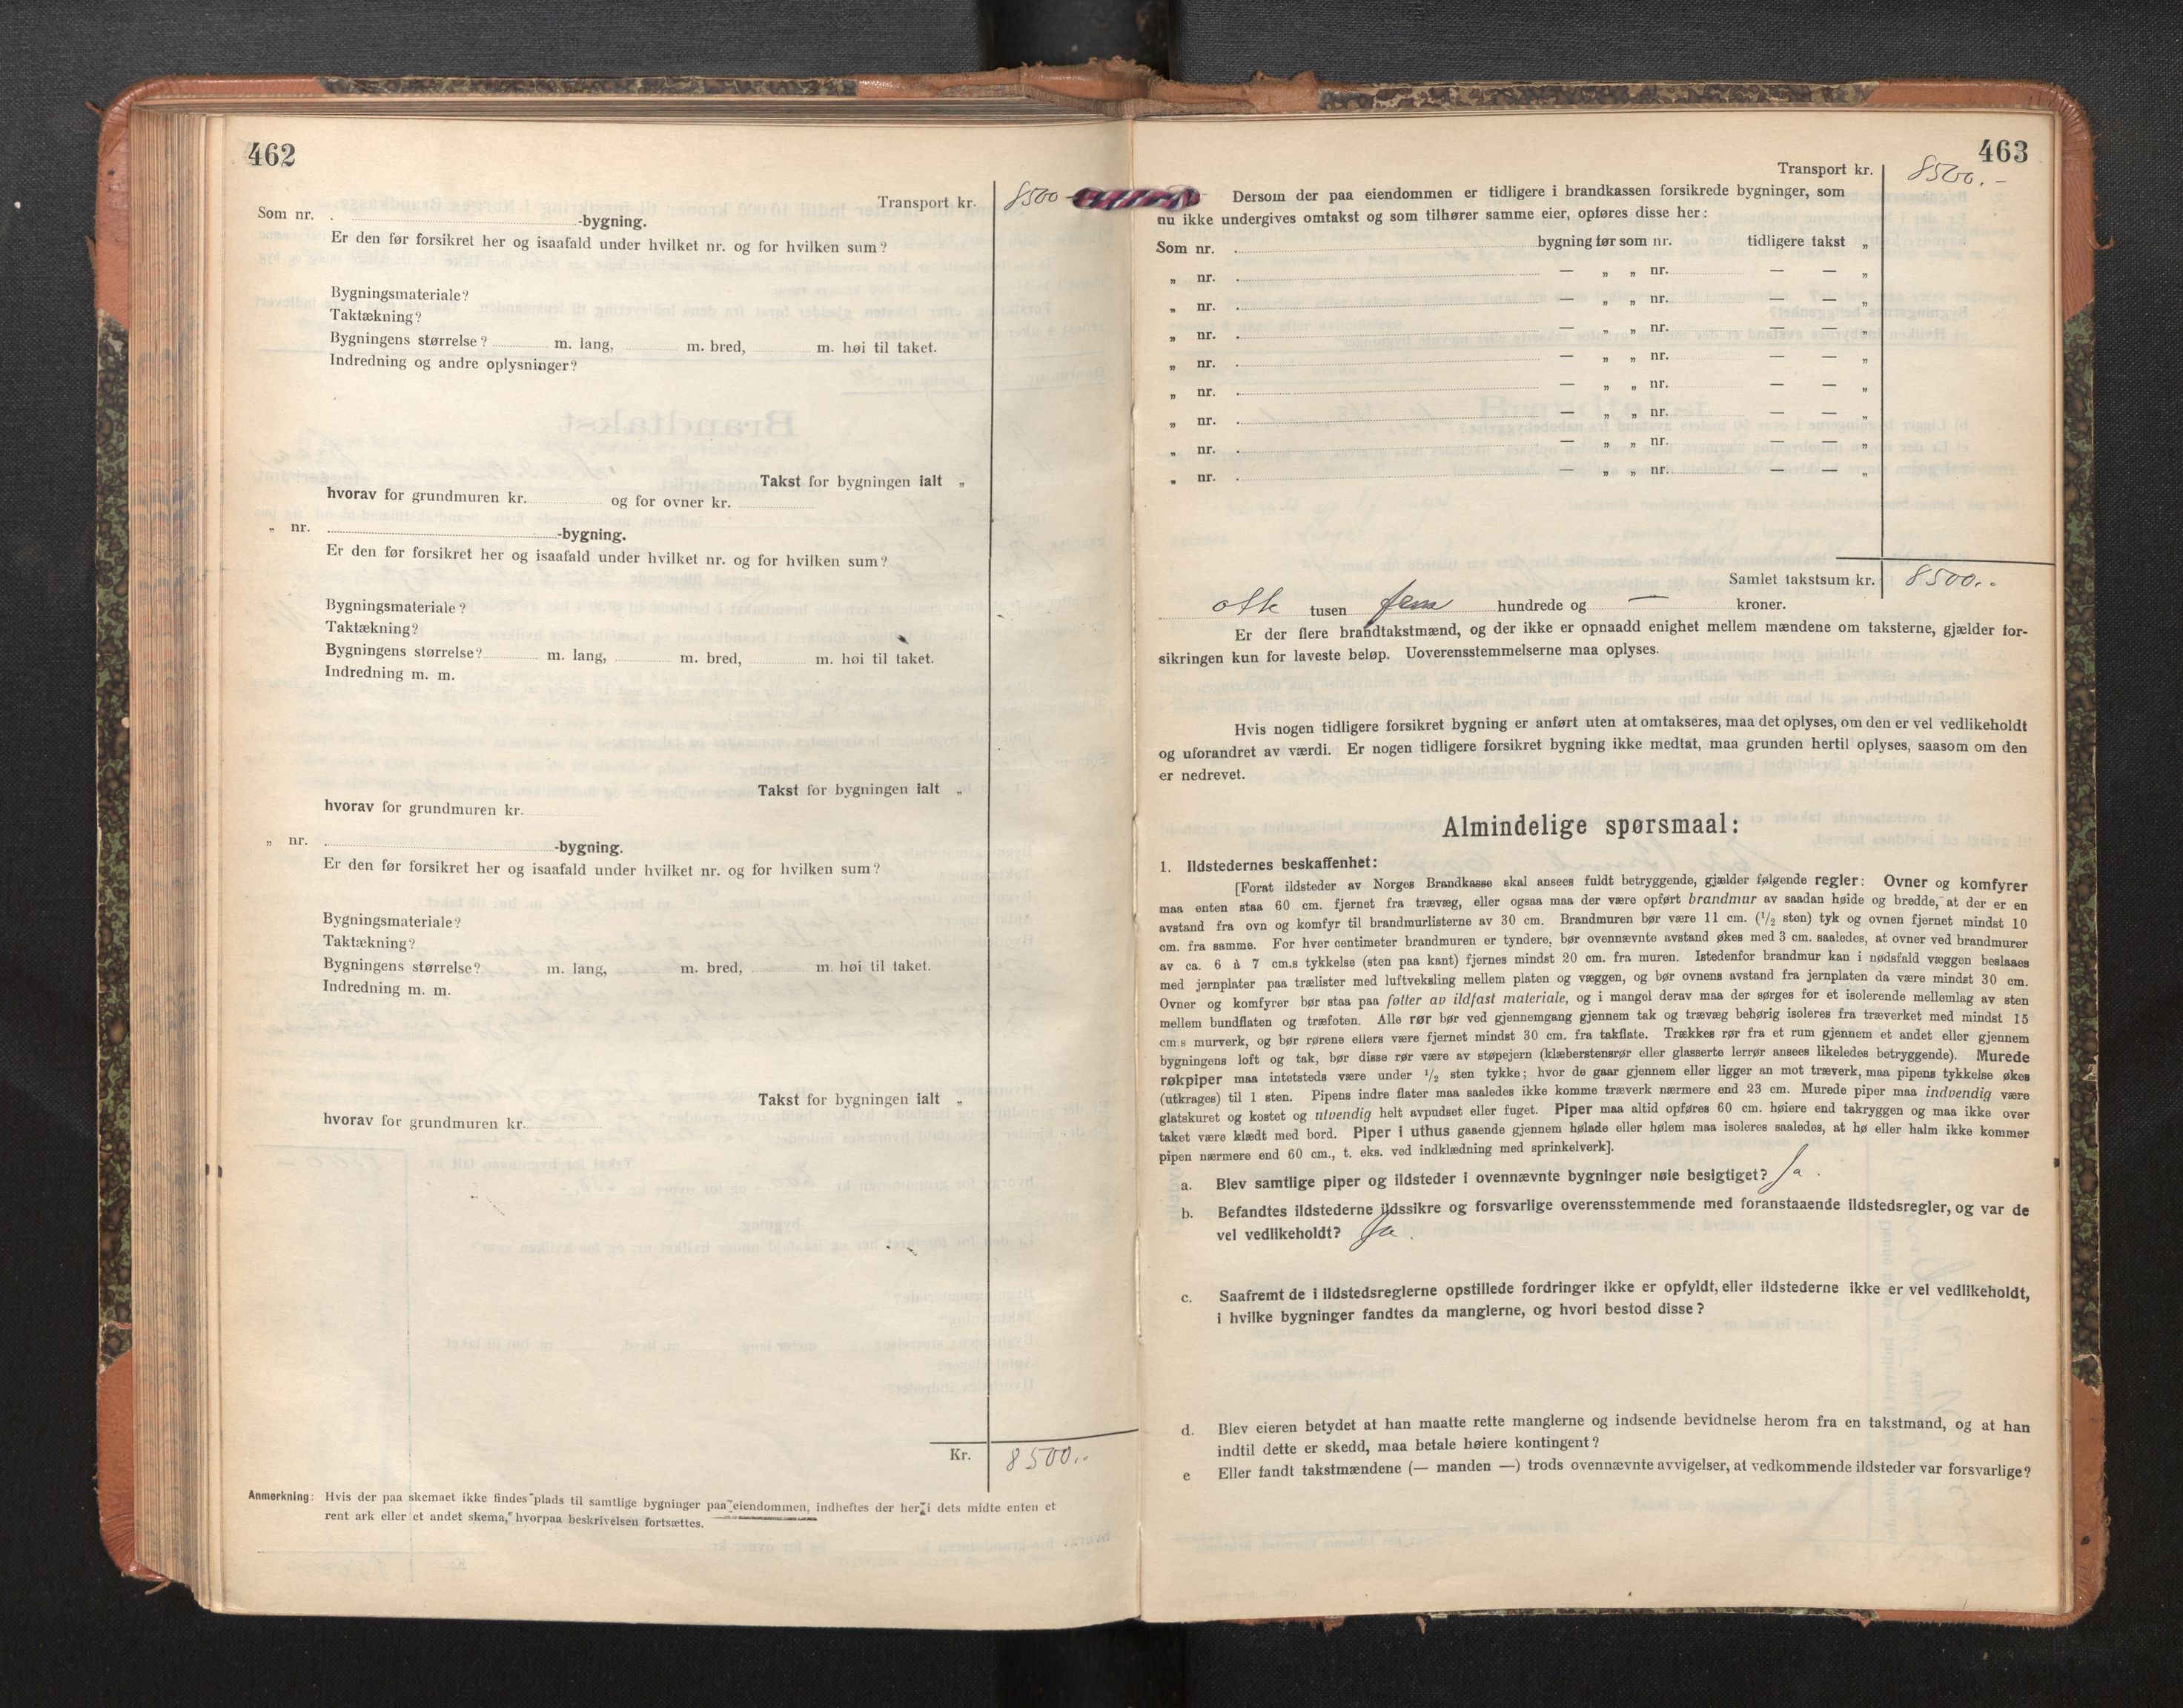 462
Transport kr. 8500 -
Som nr. -bygning.
Er den før forsikret her og isaafald under hvilket nr. og for hvilken sum?
Bygningsmateriale?
Taktækning?
Bygningens størrelse? m. lang, m. bred, m. høi til taket.
Indredning og andre oplysninger?
Takst for bygningen ialt „
hvorav for grundmuren kr. og for ovner kr.
„ nr. -bygning.
Er den før forsikret her og isaafald under hvilket nr. og for hvilken sum?
Bygningsmateriale?
Taktækning?
Bygningens størrelse? m. lang, m. bred, m. høi til taket.
Indredning m. m.
Takst for bygningen ialt „
hvorav for grundmuren kr.
„ nr. -bygning.
Er den før forsikret her og isaafald under hvilket nr. og for hvilken sum?
Bygningsmateriale?
Taktækning?
Bygningens størrelse? m. lang, m. bred, m. høi til taket.
Indredning m. m.
Takst for bygningen ialt „
hvorav for grundmuren kr.
Kr. 8500..
Anmerkning: Hvis der paa skemaet ikke findes plads til samtlige bygninger paa eiendommen, indheftes der her i dets midte enten et
rent ark eller et andet skema, hvorpaa beskrivelsen fortsættes.
463
Transport kr. 8500.-
Dersom der paa eiendommen er tidligere i brandkassen forsikrede bygninger, som
nu ikke undergives omtakst og som tilhører samme eier, opføres disse her:
Som nr. bygning før som nr. tidligere takst „
„ nr. — „ „ nr. — — „
„ nr. — „ „ nr. — — „
„ nr. — „ „ nr. — — „
„ nr. — „ „ nr. — — „
„ nr. — „ „ nr. — — „
„ nr. — „ „ nr. — — „
„ nr. — „ „ nr. — — „
„ nr. — „ „ nr. — — „
Samlet takstsum kr. 8500..
otte tusen fem hundrede og — kroner.
Er der flere brandtakstmænd, og der ikke er opnaadd enighet mellem mændene om taksterne, gjælder for-
sikringen kun for laveste beløp. Uoverensstemmelserne maa oplyses.
Hvis nogen tidligere forsikret bygning er anført uten at omtakseres, maa det oplyses, om den er vel vedlikeholdt
og uforandret av værdi. Er nogen tidligere forsikret bygning ikke medtat, maa grunden hertil oplyses, saasom om den
er nedrevet.
Almindelige spørsmaal:
1. Ildstedernes beskaffenhet:
[Forat ildsteder av Norges Brandkasse skal ansees fuldt betryggende, gjælder følgende regler: Ovner og komfyrer
maa enten staa 60 cm. fjernet fra trævæg, eller ogsaa maa der være opført brandmur av saadan høide og bredde, at der er en
avstand fra ovn og komfyr til brandmurlisterne av 30 cm. Brandmuren bør være 11 cm. (1/2 sten) tyk og ovnen fjernet mindst 10
cm. fra samme. For hver centimeter brandmuren er tyndere, bør ovennævnte avstand økes med 3 cm. saaledes, at ovner ved brandmurer
av ca. 6 à 7 cm.s tykkelse (sten paa kant) fjernes mindst 20 cm. fra muren. Istedenfor brandmur kan i nødsfald væggen beslaaes
med jernplater paa trælister med luftveksling mellem platen og væggen, og bør ovnens avstand fra jernplaten da være mindst 30 cm.
Ovner og komfyrer bør staa paa føtter av ildfast materiale, og i mangel derav maa der sørges for et isolerende mellemlag av sten
mellem bundflaten og træfoten. Alle rør bør ved gjennemgang gjennem tak og trævæg behørig isoleres fra træverket med mindst 15
cm.s murverk, og bør rørene ellers være fjernet mindst 30 cm. fra takflate. Trækkes rør fra et rum gjennem et andet eller gjennem
bygningens loft og tak, bør disse rør være av støpejern (klæberstensrør eller glasserte lerrør ansees likeledes betryggende). Murede
røkpiper maa intetsteds være under 1/2 sten tykke; hvor de gaar gjennem eller ligger an mot træverk, maa pipens tykkelse økes
(utkrages) til 1 sten. Pipens indre flater maa saaledes ikke komme træverk nærmere end 23 cm. Murede piper maa indvendig være
glatskuret og kostet og utvendig helt avpudset eller fuget. Piper maa altid opføres 60 cm. høiere end takryggen og maa ikke over
taket være klædt med bord. Piper i uthus gaaende gjennem hølade eller hølem maa isoleres saaledes, at hø eller halm ikke kommer
pipen nærmere end 60 cm., t. eks. ved indklædning med sprinkelverk].
a. Blev samtlige piper og ildsteder i ovennævnte bygninger nøie besigtiget? Ja.
b. Befandtes ildstederne ildssikre og forsvarlige overensstemmende med foranstaaende ildstedsregler, og var de
vel vedlikeholdt? Ja.
c. Saafremt de i ildstedsreglerne opstillede fordringer ikke er opfyldt, eller ildstederne ikke er vel vedlikeholdt,
i hvilke bygninger fandtes da manglerne, og hvori bestod disse?
d. Blev eieren betydet at han maatte rette manglerne og indsende bevidnelse herom fra en takstmand, og at han
indtil dette er skedd, maa betale høiere kontingent?
e Eller fandt takstmændene (— manden —) trods ovennævnte avvigelser, at vedkommende ildsteder var forsvarlige?